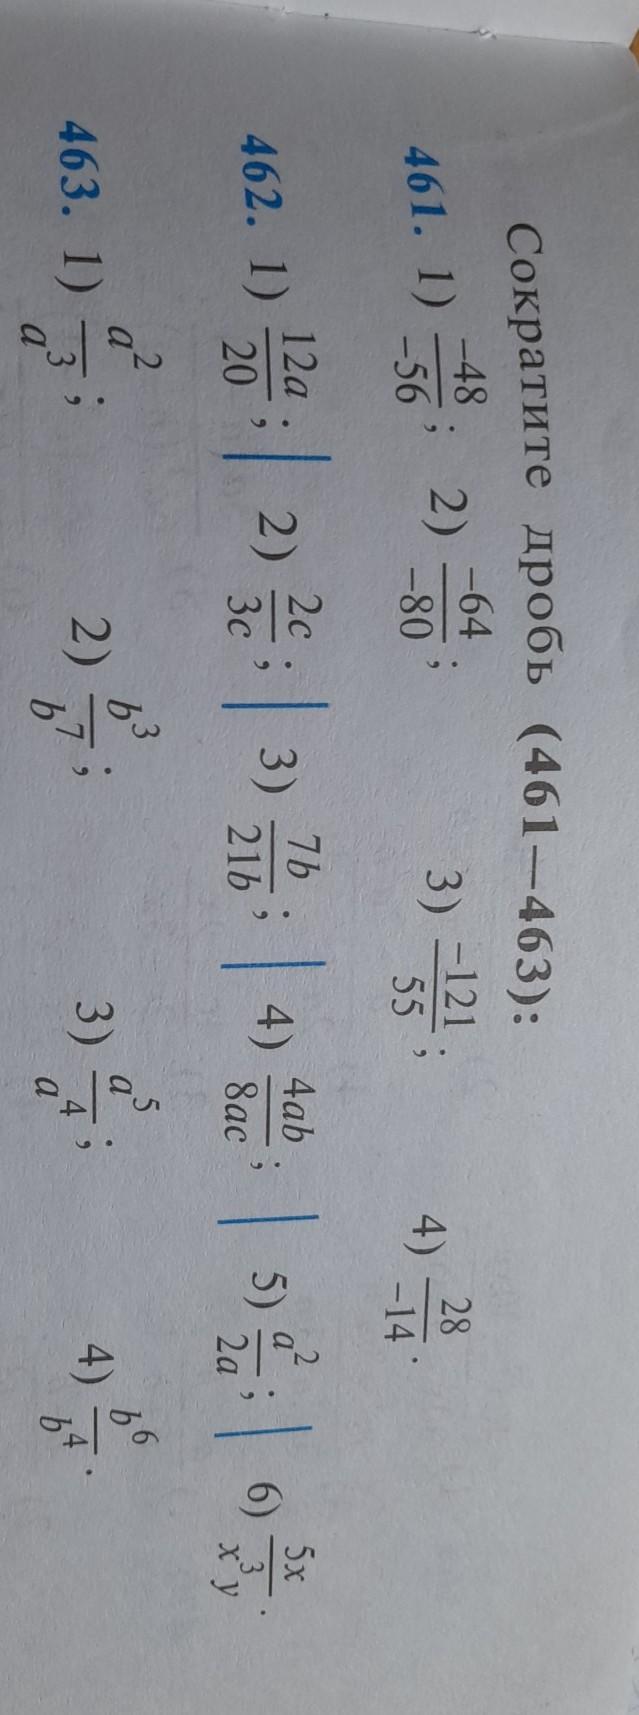 Сократите дробь (461—463):
461. 1) $\frac{-48}{-56}$; 2) $\frac{-64}{-80}$; 3) $\frac{-121}{55}$; 4) $\frac{28}{-14}$.
462. 1) $\frac{12a}{20}$; 2) $\frac{2c}{3c}$; 3) $\frac{7b}{21b}$; 4) $\frac{4ab}{8ac}$; 5) $\frac{a^2}{2a}$; 6) $\frac{5x}{x^3y}$.
463. 1) $\frac{a^2}{a^3}$; 2) $\frac{b^3}{b^7}$; 3) $\frac{a^5}{a^4}$; 4) $\frac{b^6}{b^4}$.